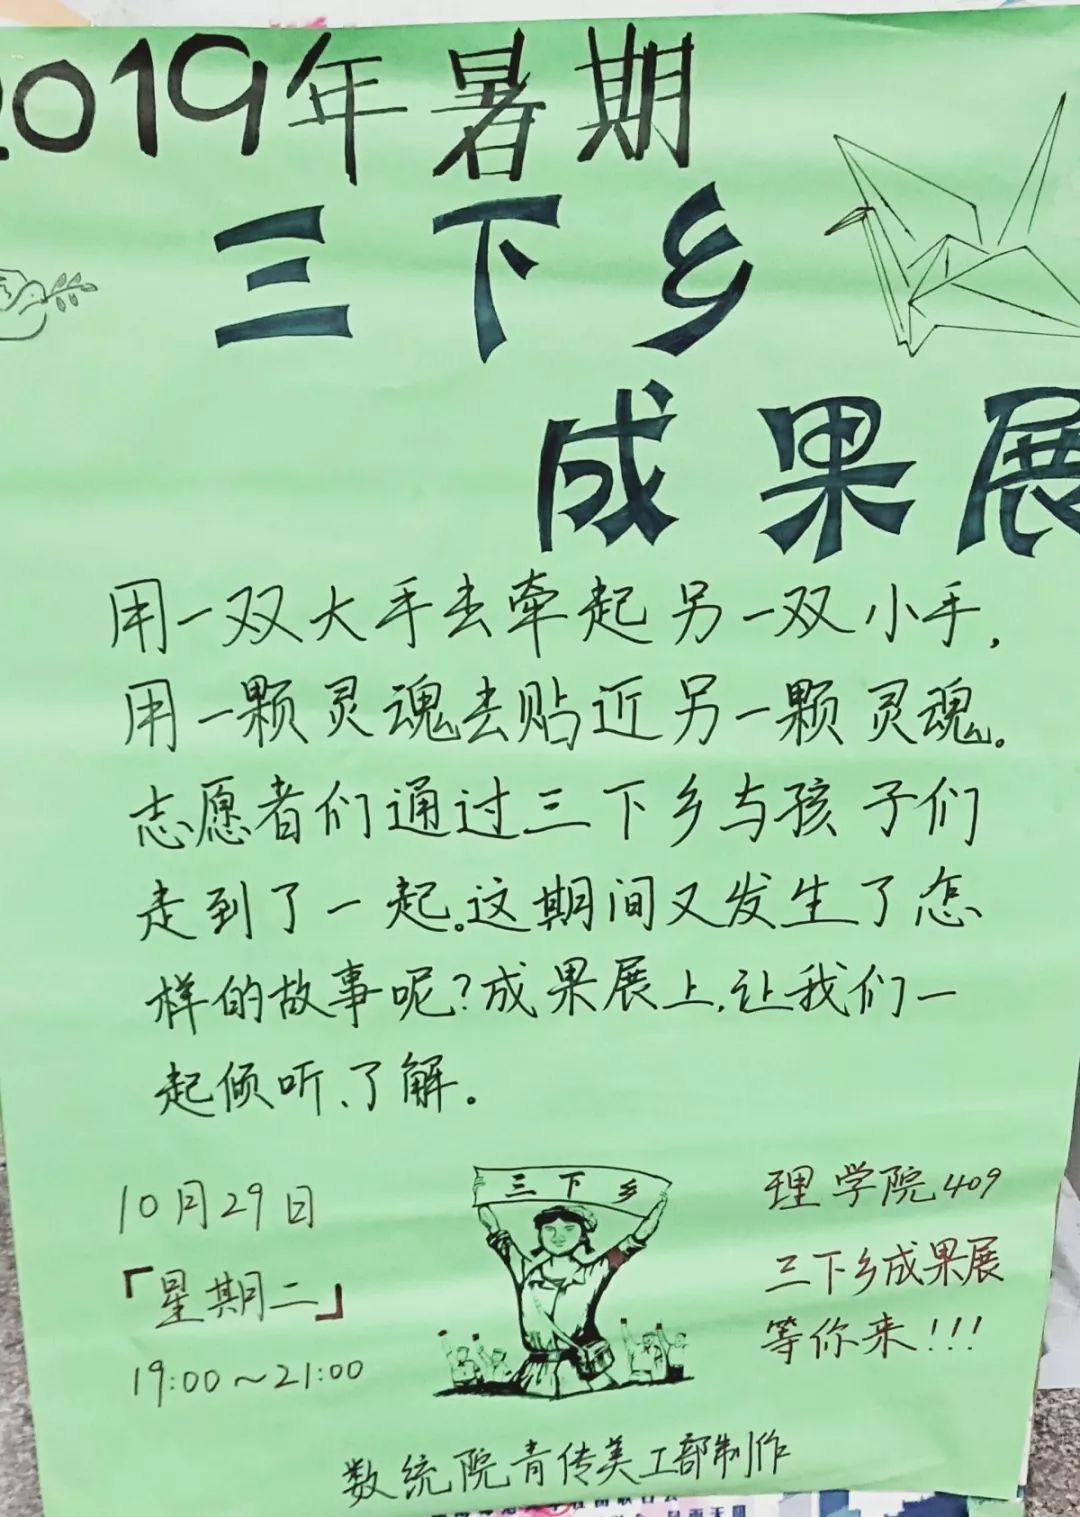 2019年暑期
三下乡
成果展
用一双大手去牵起另一双小手,
用一颗灵魂去贴近另一颗灵魂。
志愿者们通过三下乡与孩子们
走到了一起。这期间又发生了怎
样的故事呢?成果展上,让我们一
起倾听、了解。
10月29日
「星期二」
19:00~21:00
三下乡
理学院409
三下乡成果展
等你来!!!
数统院青传美工部制作